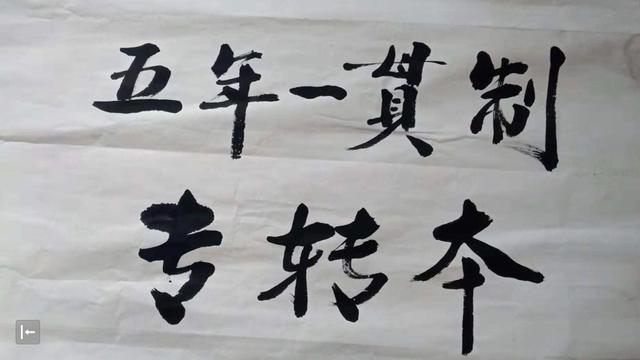 五年一贯制
专转本